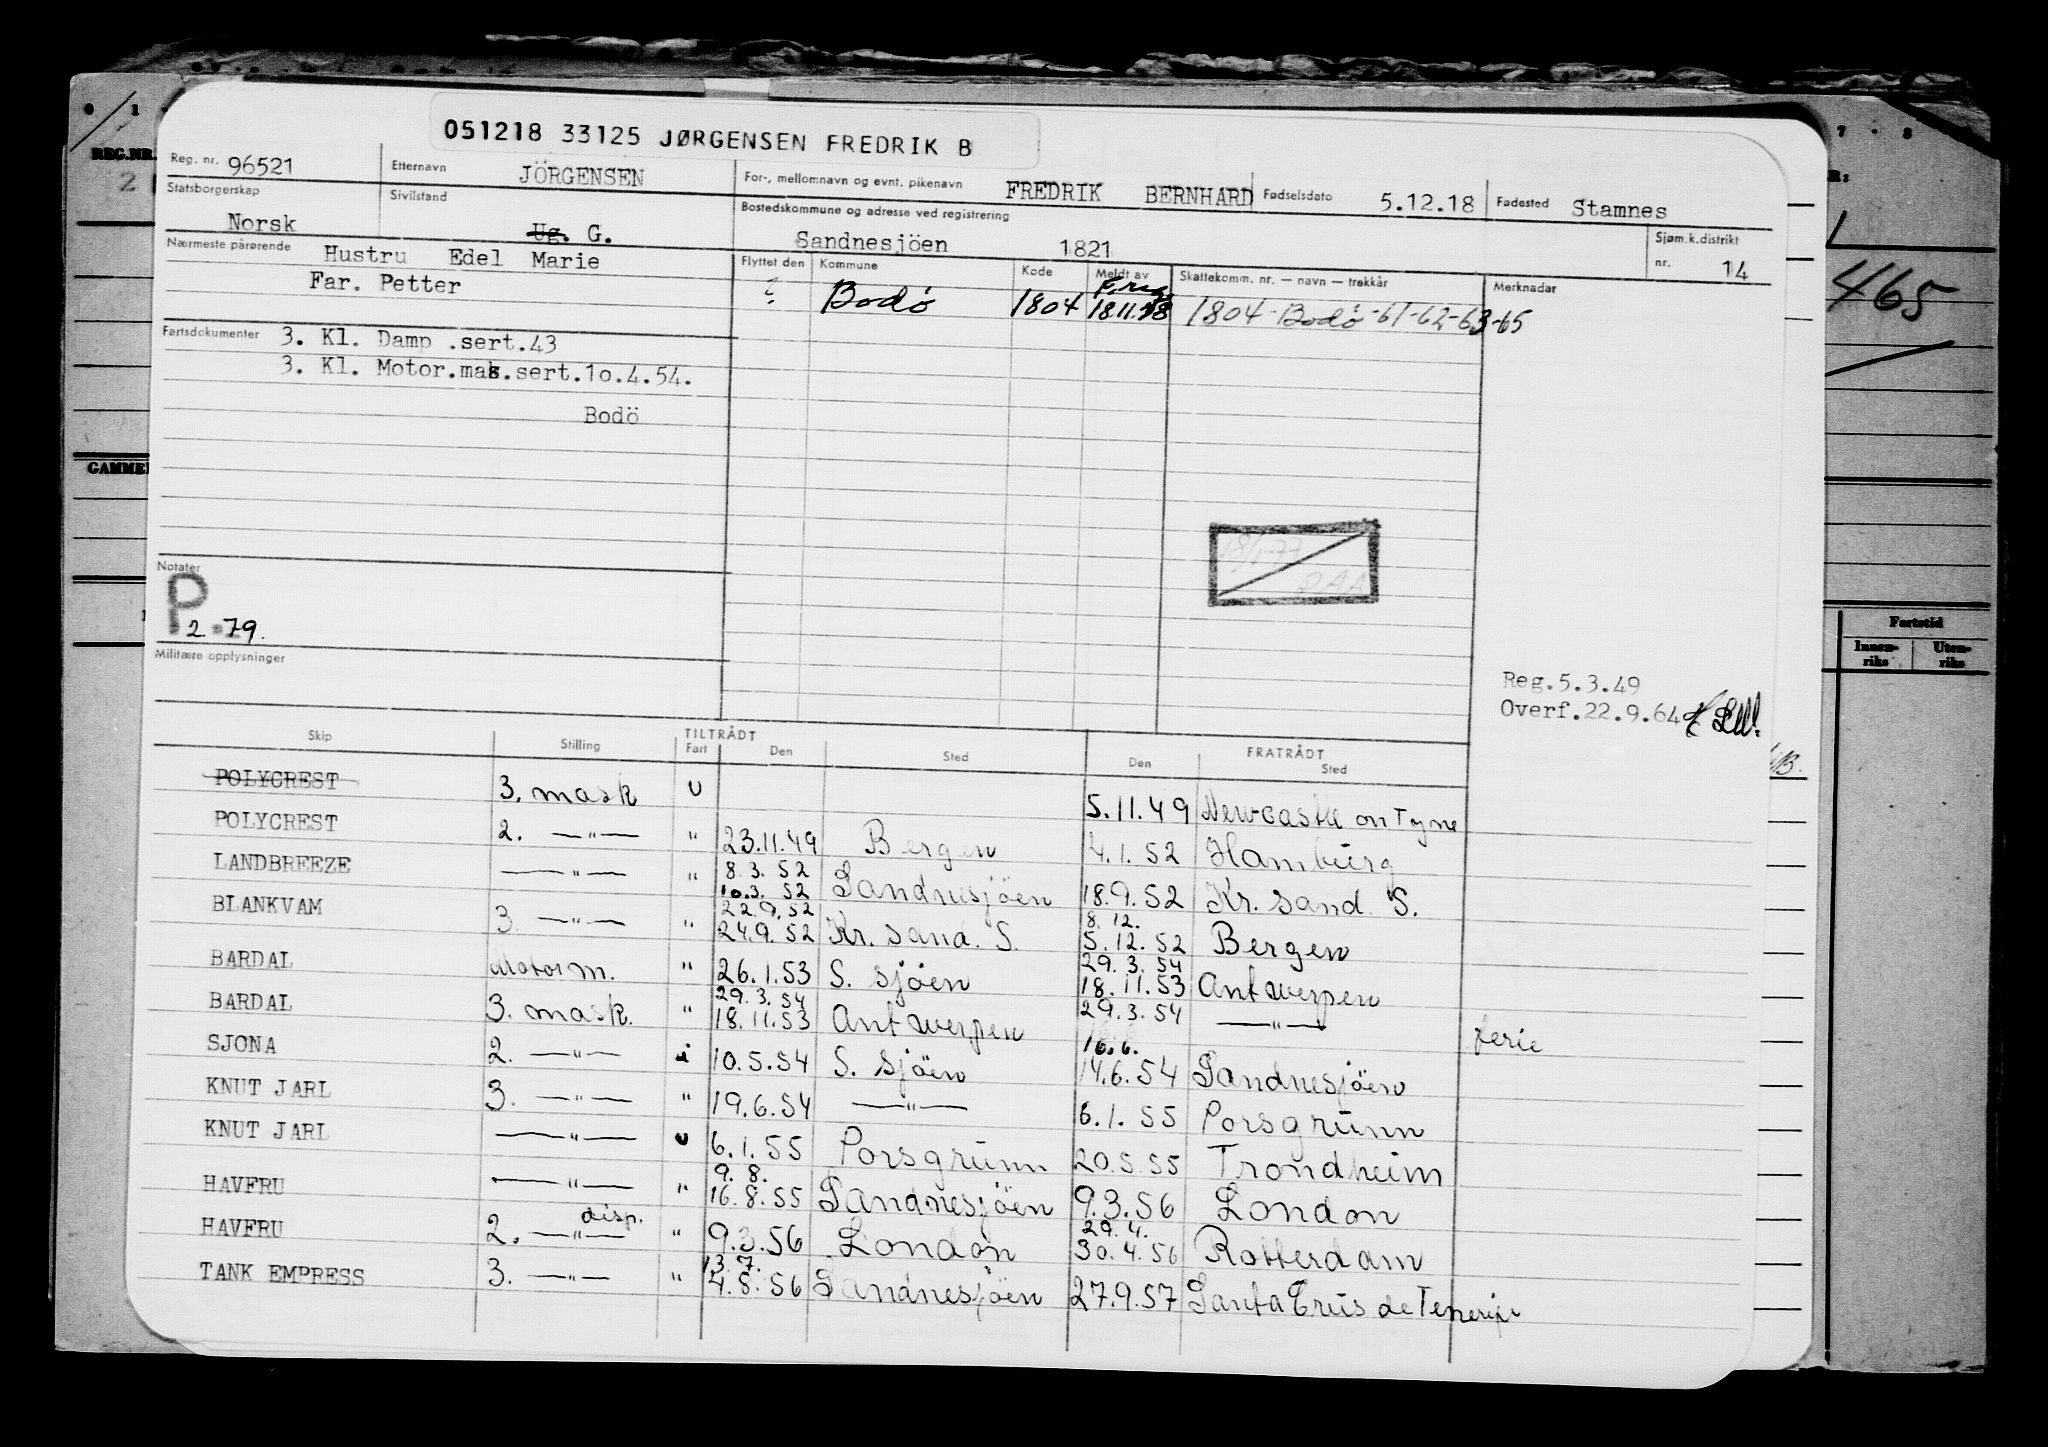 051218 33125 JØRGENSEN FREDRIK B
Reg. nr. 96521 Etternavn JÖRGENSEN For-, mellomnavn og evnt. pikenavn FREDRIK BERNHARD Fødselsdato 5.12.18 Fødested Stamnes
Statsborgerskap Norsk Sivilstand Ug. G. Bostedskommune og adresse ved registrering Sandnesjöen 1821 Sjøm.k.distrikt nr. 14
Nærmeste pårørende Hustru Edel Marie
Far. Petter
Flyttet den Kommune Kode Meldt av Skattekomm. nr. — navn — trekkår Merknader
? Bodø 1804 18.11.58 1804 Bodø -61-62-63-65
Fartsdokumenter 3. Kl. Damp .sert.43
3. Kl. Motor.mask.sert.10.4.54.
Bodö
Notater
P
2.79.
Militære opplysninger
Reg.5.3.49
Overf.22.9.64
TILTRÅDT FRATRÅDT
Skip Stilling Fart Den Sted Den Sted
POLYCREST 3. mask U 5.11.49 Newcastle on Tyne
POLYCREST 2. —"— " 23.11.49 Bergen 4.1.52 Hamburg
LANDBREEZE —"— " 8.3.52 10.3.52 Sandnesjöen 18.9.52 Kr. sand. S.
BLANKVAM 3. —"— " 22.9.52 24.9.52 Kr. sand. S. 8.12. 5.12.52 Bergen
BARDAL Motorm. " 26.1.53 S. sjöen 29.3.54 18.11.53 Antwerpen
BARDAL 3. mask. " 29.3.54 18.11.53 Antwerpen 29.3.54 —"— ferie
SJONA 2. —"— i 10.5.54 S. sjöen 16.6. 14.6.54 Sandnesjöen
KNUT JARL 3. —"— " 19.6.54 —"— 6.1.55 Porsgrunn
KNUT JARL —"— U 6.1.55 Porsgrunn 20.5.55 Trondheim
HAVFRU —"— " 9.8. 16.8.55 Sandnesjöen 9.3.56 London
HAVFRU 2. —"— disp. " 9.3.56 London 29.4. 30.4.56 Rotterdam
TANK EMPRESS 3. —"— " 13.7. 4.8.56 Sandnesjöen 27.9.57 Santa Crus de Tenerife
REG.NR.
GAMMEL
465
Fartstid
Innenriks Utenriks